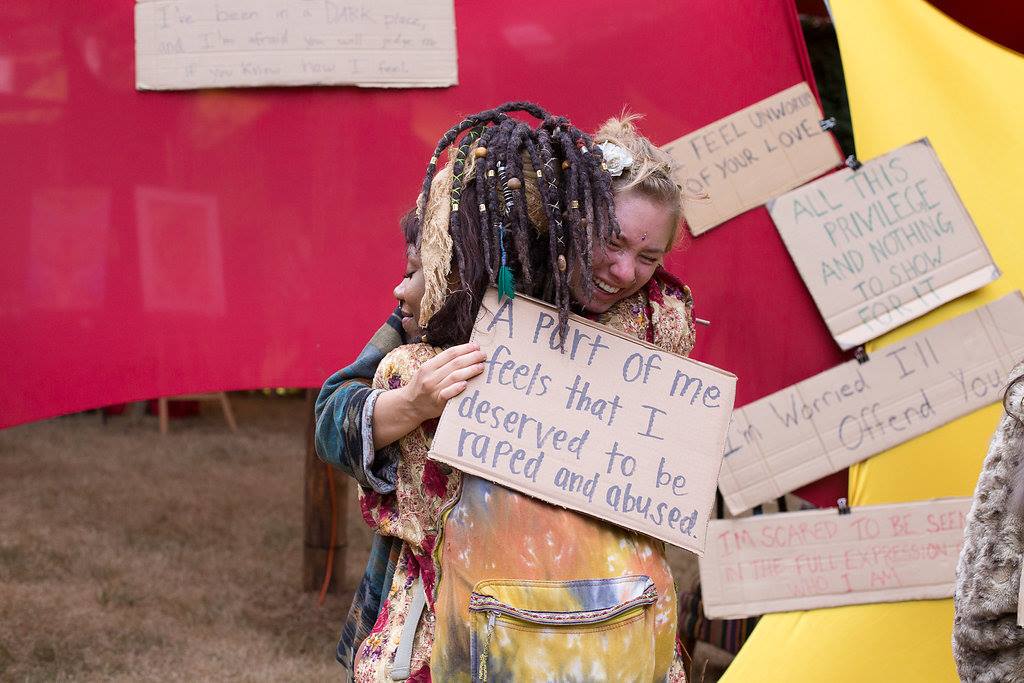 I've been in a DARK place,
and I'm afraid you will judge me
if you know how I feel
FEEL UNWORTHY
OF YOUR LOVE
ALL THIS
PRIVILEGE
AND NOTHING
TO SHOW
FOR IT
A part of me
feels that I
deserved to be
raped and abused.
I'm Worried I'll
Offend You
I'M SCARED TO BE SEEN
IN THE FULL EXPRESSION
WHO I AM